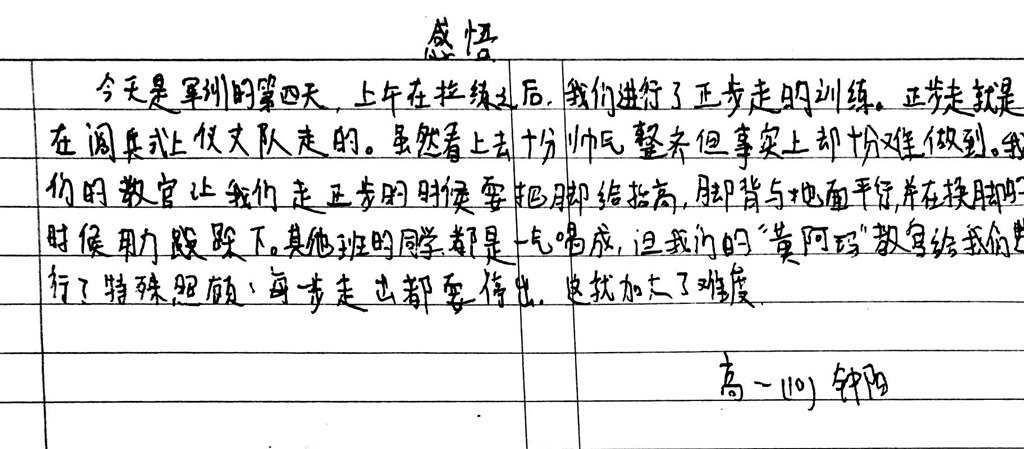 感悟
今天是军训的第四天，上午在拉练之后，我们进行了正步走的训练。正步走就是
在阅兵式上仪丈队走的。虽然看上去十分帅气整齐但事实上却十分难做到。我
们的教官让我们走正步的时候要把脚给抬高，脚背与地面平行，并在换脚的
时候用力跺下。其他班的同学都是一气喝成，但我们的“黄阿玛”教官给我们进
行了特殊照顾：每一步走出都要停出，这就加大了难度.
高一(10) 钟阳